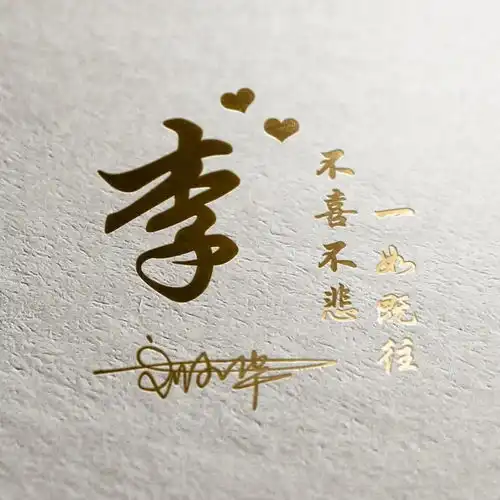 李
不喜不悲
一如既往